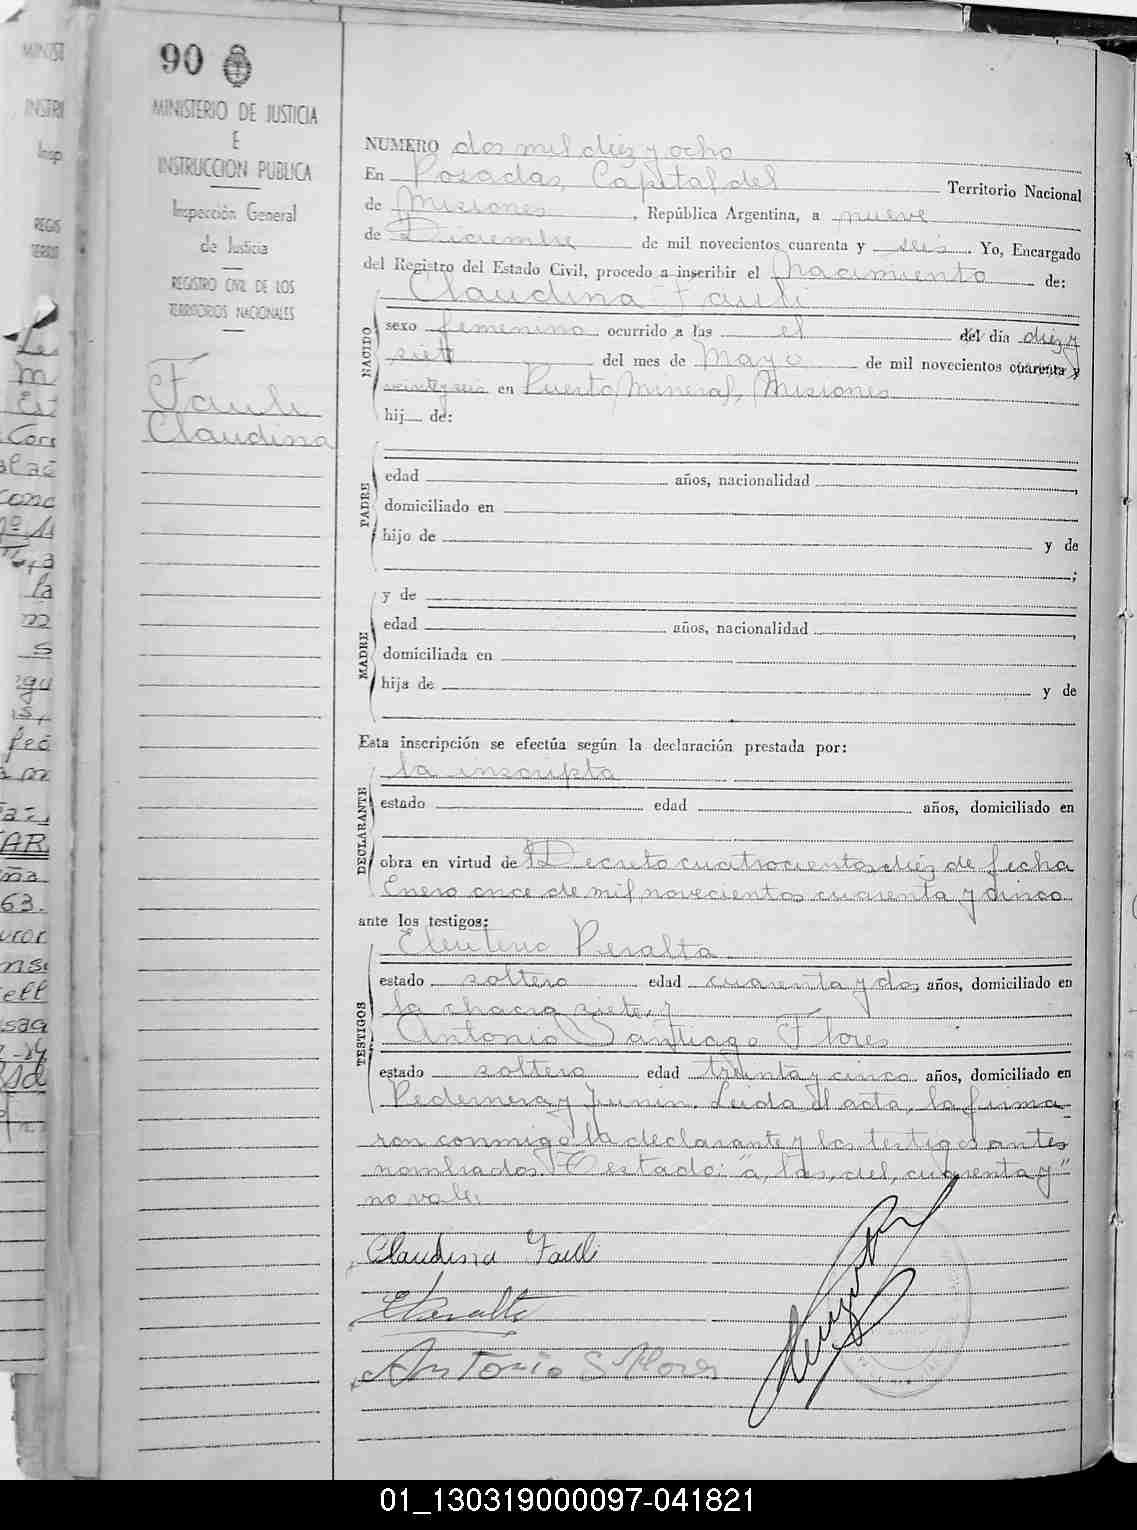 90
MINISTERIO DE JUSTICIA
E
INSTRUCCION PUBLICA
Inspección General
de Justicia
REGISTRO CIVIL DE LOS
TERRITORIOS NACIONALES
Fauli
Claudina
NUMERO dos mil diez y ocho
En Posadas, Capital del Territorio Nacional
de Misiones, República Argentina, a nueve
de Diciembre de mil novecientos cuarenta y seis. Yo, Encargado
del Registro del Estado Civil, procedo a inscribir el Nacimiento de:
Claudina Fauli
NACIDO
sexo femenino ocurrido a las el del día diez y
siete del mes de Mayo de mil novecientos cuarenta y
veinteyseis en Puerto Mineral, Misiones
hij de:
PADRE
edad años, nacionalidad ,
domiciliado en
hijo de y de
;
MADRE
y de
edad años, nacionalidad ,
domiciliada en
hija de y de
Esta inscripción se efectúa según la declaración prestada por:
DECLARANTE
la inscripta
estado edad años, domiciliado en
obra en virtud de Decreto cuatrocientos diez de fecha
Enero once de mil novecientos cuarenta y cinco
ante los testigos:
TESTIGOS
Eleuterio Peralta
estado soltero edad cuarenta y dos años, domiciliado en
la chacra siete, y
Antonio Santiago Flores
estado soltero edad treinta y cinco años, domiciliado en
Pedernera y Junin. Leida el acta, la firma
ron conmigo la declarante y los testigos antes
nombrados. Testado: "a, las, del, cuarenta y"
no vale.
Claudina Fauli
EPeralta
Antonio S Flores
01_130319000097-041821